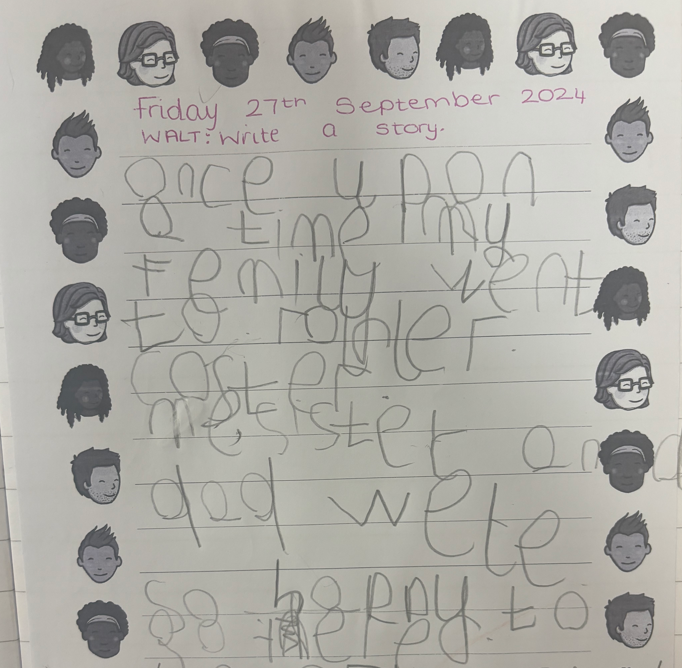 Friday 27th September 2024
WALT: Write a story.
Once upon
a time my
femily went
to roller.
coster
me sister and
dad wete
so happy to